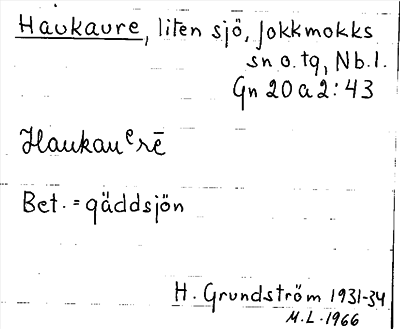 Haukaure, liten sjö, Jokkmokks
sn o. tg, Nb.l.
Gn 20 a 2:43
Haukauᵉrē
Bet. = gäddsjön
H. Grundström 1931-34
M.L. 1966